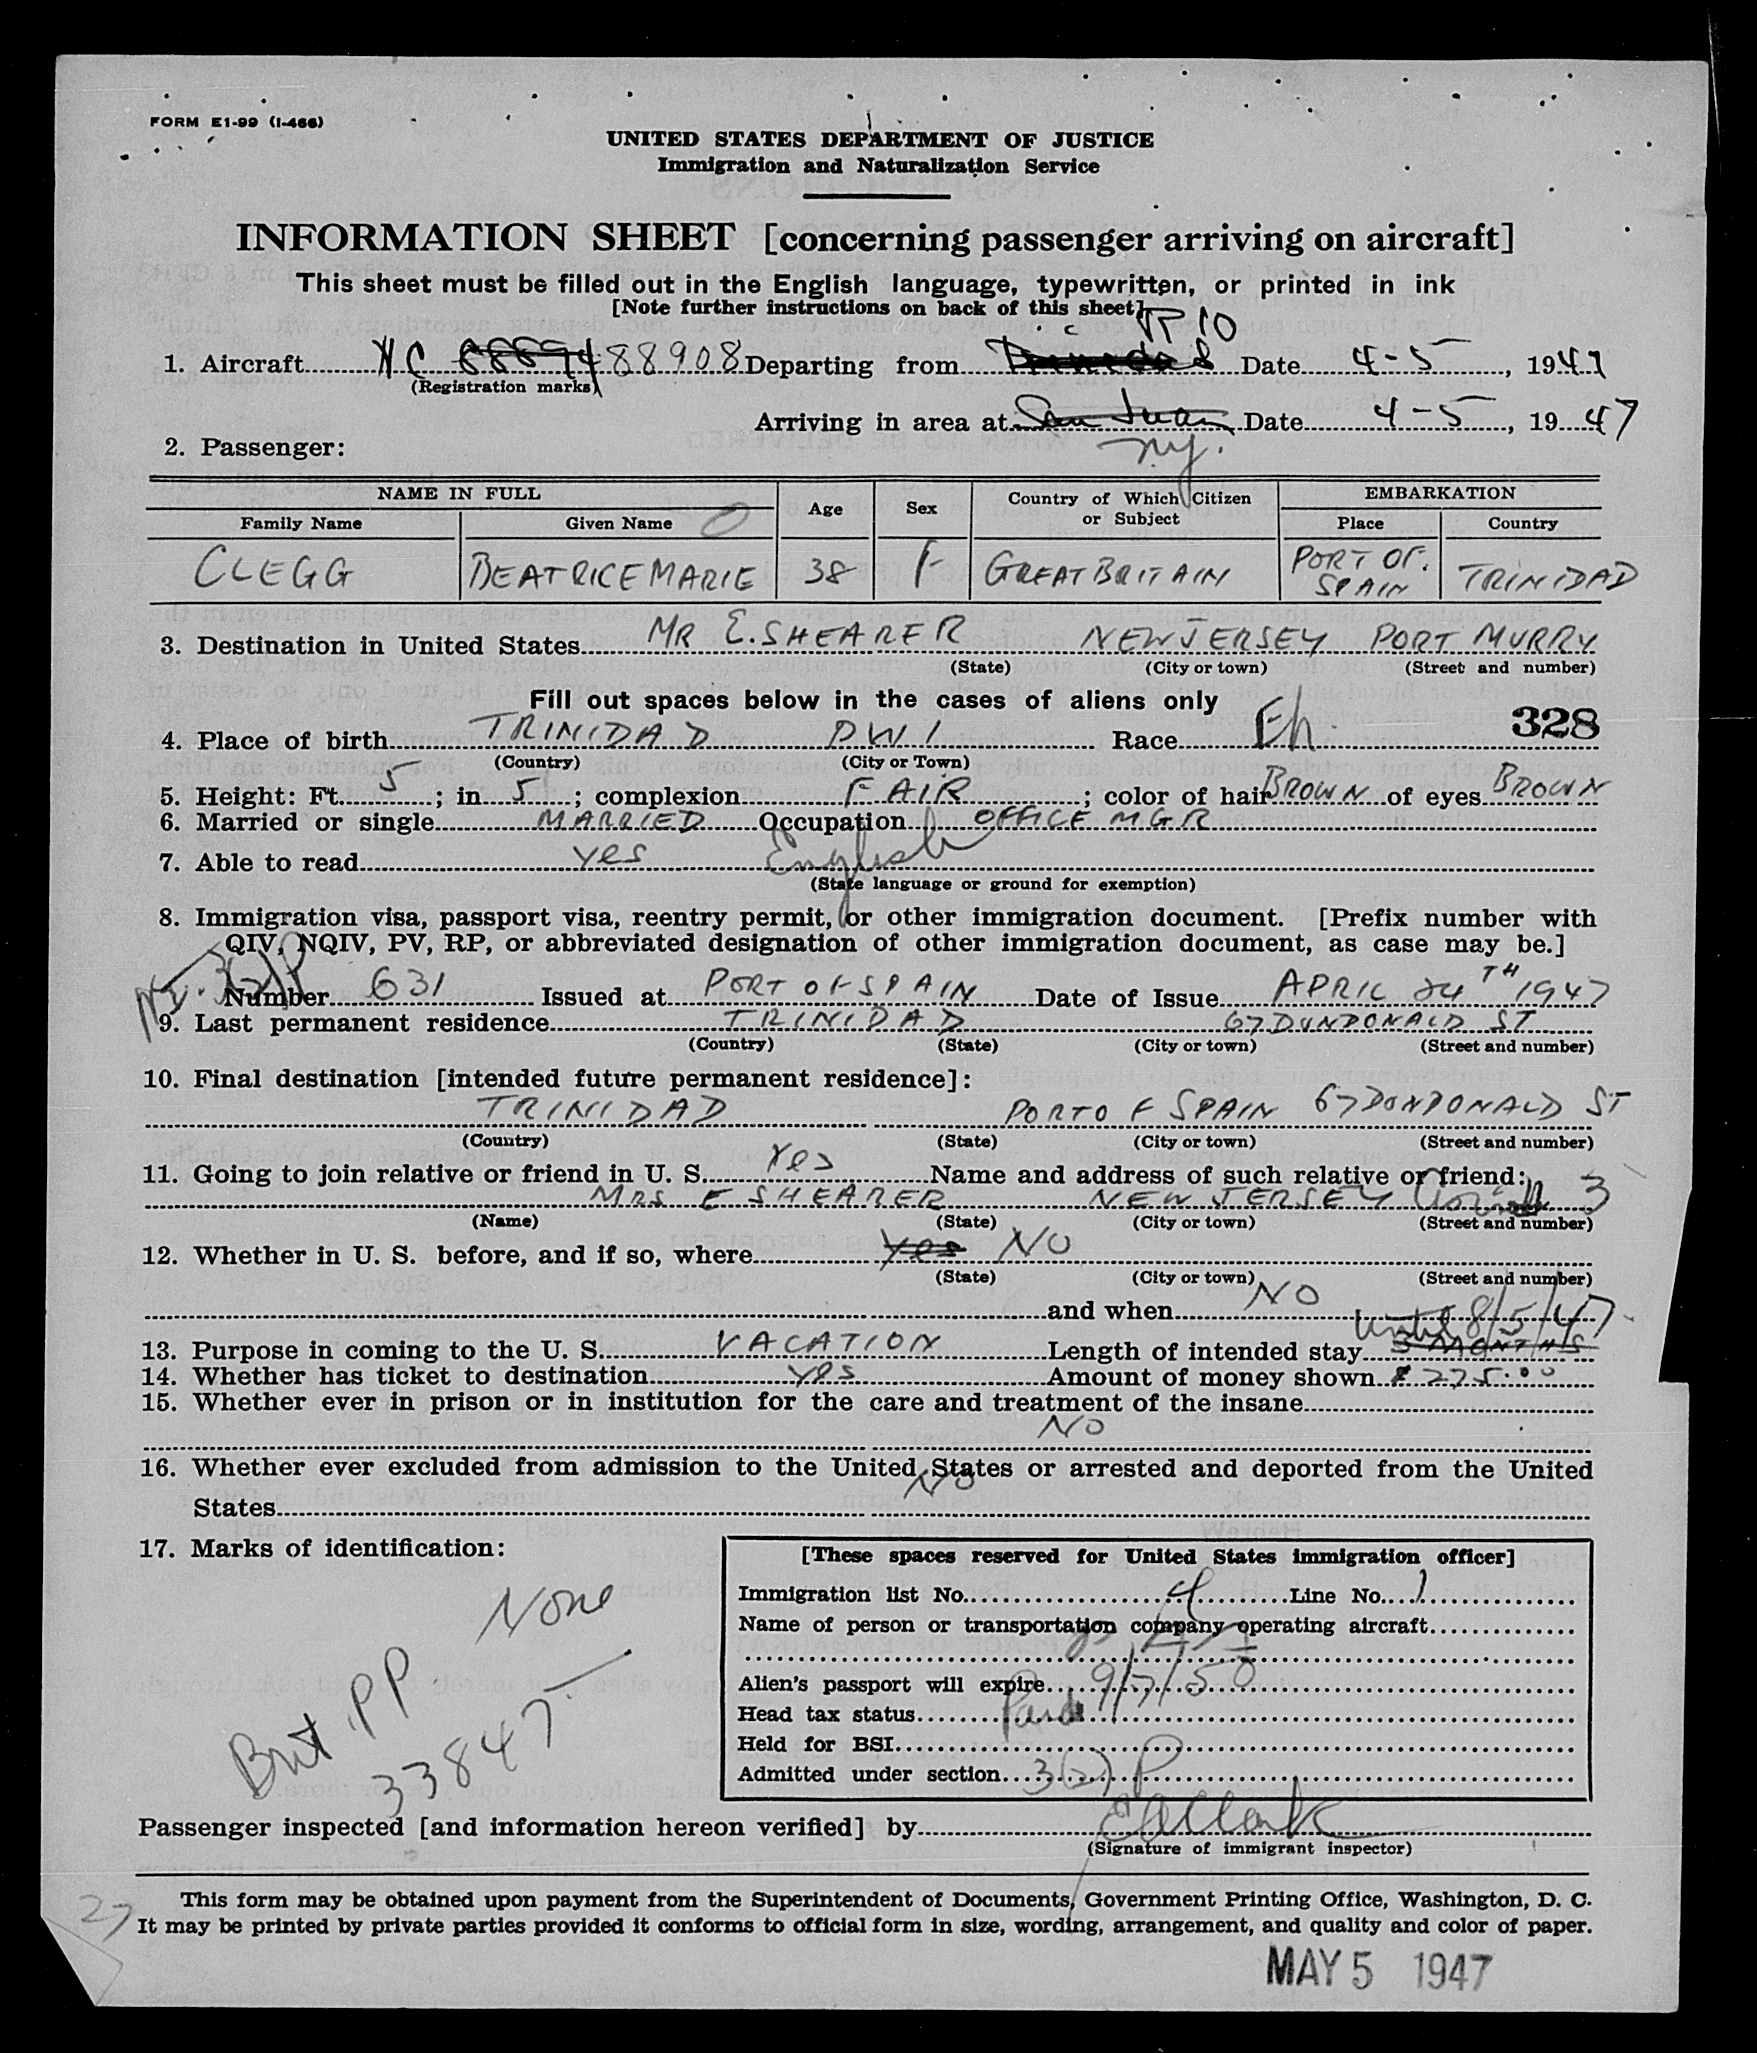 FORM E1-99 (I-466)
UNITED STATES DEPARTMENT OF JUSTICE
Immigration and Naturalization Service
INFORMATION SHEET [concerning passenger arriving on aircraft]
This sheet must be filled out in the English language, typewritten, or printed in ink
[Note further instructions on back of this sheet]
1. Aircraft NC 88894 88908 Departing from Trinidad Date 4-5, 1947
(Registration marks)
Arriving in area at San Juan Date 4-5, 1947
N.Y.
2. Passenger:
NAME IN FULL Age Sex Country of Which Citizen or Subject EMBARKATION
Family Name Given Name Place Country
CLEGG BEATRICE MARIE 38 F GREAT BRITAIN PORT OF SPAIN TRINIDAD
3. Destination in United States MR E. SHEARER NEW JERSEY PORT MURRY
(State) (City or town) (Street and number)
Fill out spaces below in the cases of aliens only
328
4. Place of birth TRINIDAD BWI Race Eh.
(Country) (City or Town)
5. Height: Ft. 5; in. 5; complexion FAIR; color of hair BROWN of eyes BROWN
6. Married or single MARRIED Occupation OFFICE MGR
7. Able to read yes English
(State language or ground for exemption)
8. Immigration visa, passport visa, reentry permit, or other immigration document. [Prefix number with
QIV, NQIV, PV, RP, or abbreviated designation of other immigration document, as case may be.]
Number 631 Issued at PORT OF SPAIN Date of Issue APRIL 24TH 1947
9. Last permanent residence TRINIDAD 67 DUNDONALD ST
(Country) (State) (City or town) (Street and number)
10. Final destination [intended future permanent residence]:
TRINIDAD PORT OF SPAIN 67 DONDONALD ST
(Country) (State) (City or town) (Street and number)
11. Going to join relative or friend in U. S. Yes Name and address of such relative or friend:
MRS E SHEARER NEW JERSEY
(Name) (State) (City or town) (Street and number)
12. Whether in U. S. before, and if so, where Yes NO
(State) (City or town) (Street and number)
and when NO
until 8/5/47
13. Purpose in coming to the U. S. VACATION Length of intended stay 3 MONTHS
14. Whether has ticket to destination yes Amount of money shown $ 275.00
15. Whether ever in prison or in institution for the care and treatment of the insane
NO
16. Whether ever excluded from admission to the United States or arrested and deported from the United
States NO
17. Marks of identification:
None
Brit PP
33847
[These spaces reserved for United States immigration officer]
Immigration list No. 4 Line No. 1
Name of person or transportation company operating aircraft
Alien's passport will expire 9/7/50
Head tax status Paid
Held for BSI
Admitted under section 3(2) P
Passenger inspected [and information hereon verified] by
(Signature of immigrant inspector)
27
This form may be obtained upon payment from the Superintendent of Documents, Government Printing Office, Washington, D. C.
It may be printed by private parties provided it conforms to official form in size, wording, arrangement, and quality and color of paper.
MAY 5 1947